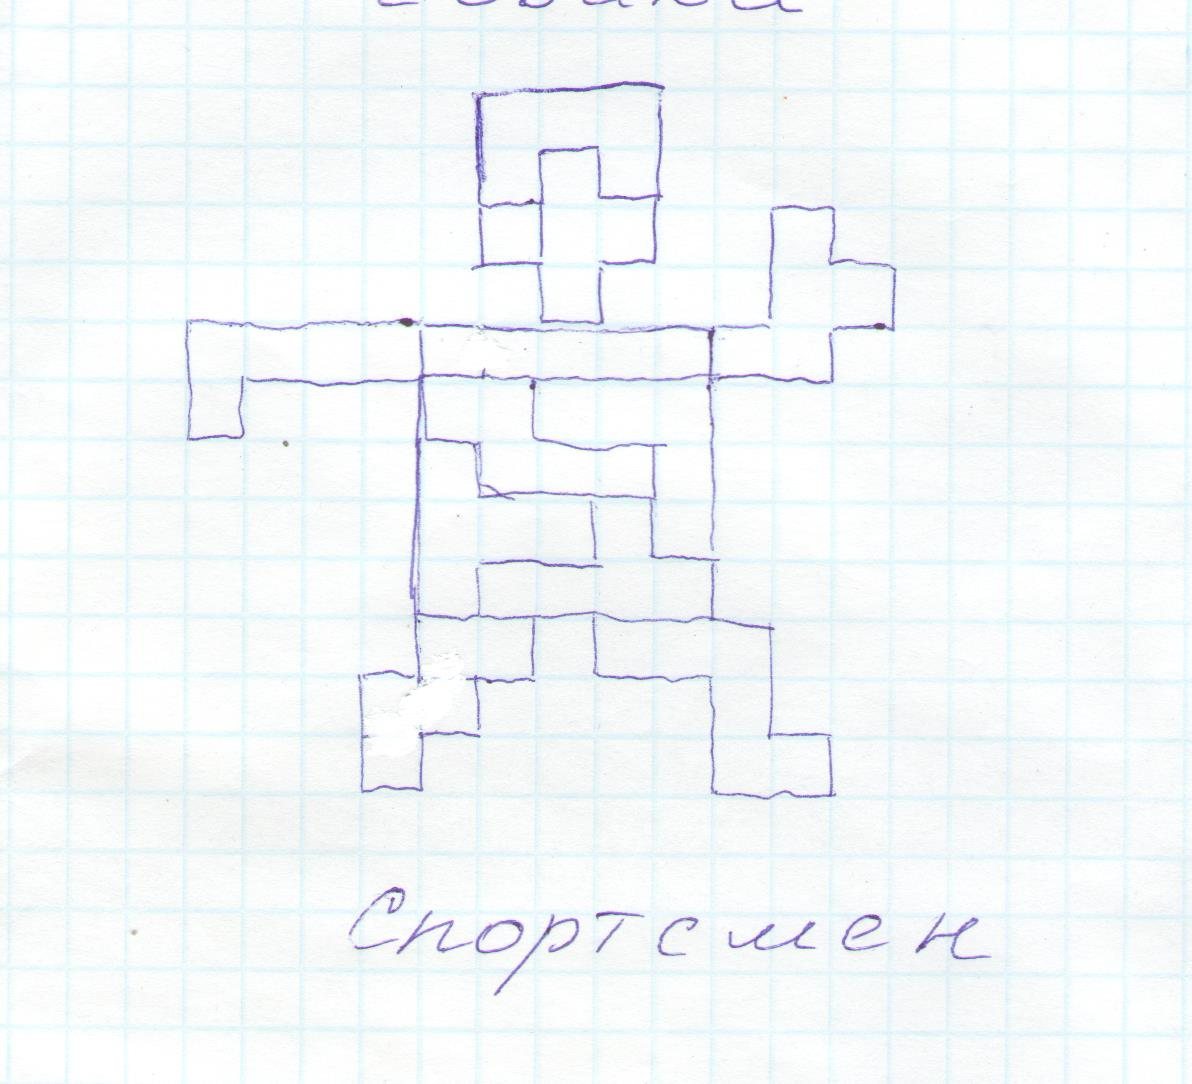 Спортсмен